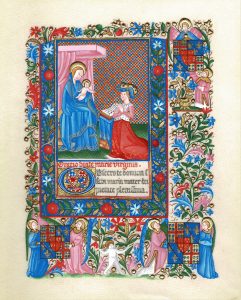 Oratio beate marie virginis.
Obsecro te domina s
maria mater dei
pietate plenissima